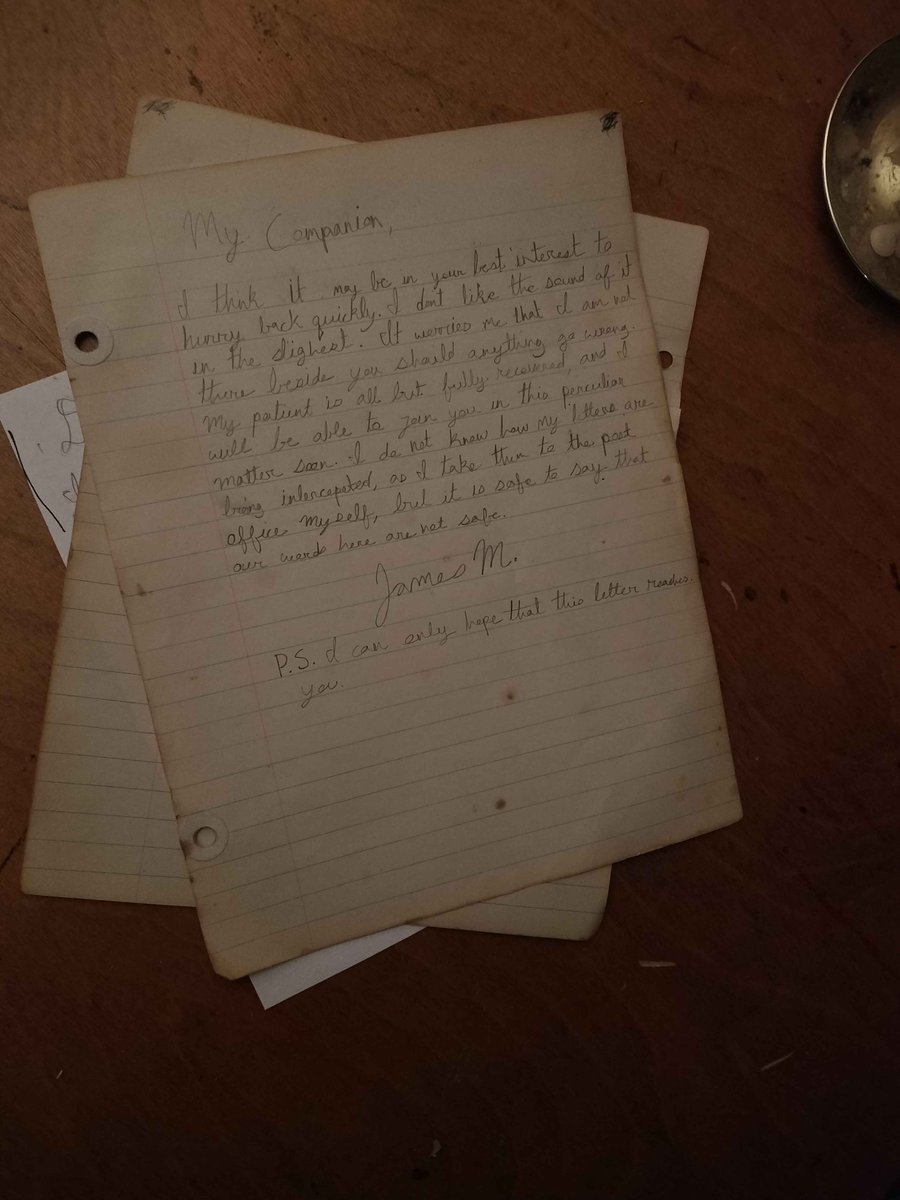 My Companion,
I think it may be in your best interest to
hurry back quickly. I don't like the sound of it
in the slighest. It worries me that I am not
there beside you should anything go wrong.
My patient is all but fully recovered, and I
will be able to join you in this peculiar
matter soon. I do not know how my letters are
being intercepted, as I take them to the post
office myself, but it is safe to say that
our words here are not safe.
James M.
P.S. I can only hope that this letter reaches
you.